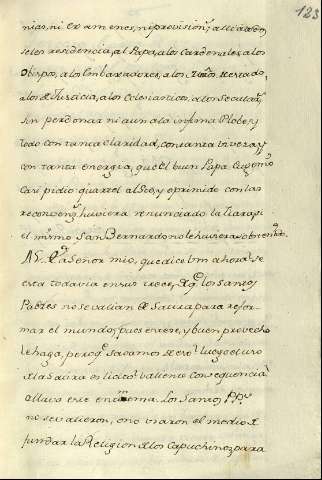 123
nias, ni examenes, ni provision.^s a
seles en residencia, al Papa, a los Cardenales, a los
Obispos, a los Embaxadores, a los de estado,
a los de Justicia, a los eclesiasticos, a los Secular.^s
sin perdonar ni aun a la infima Plebe, y
todo con tanta claridad, con tanta viveza, y
con tanta energia, que el buen Papa Eugenio
casi pidio quartel al S.^to, y oprimido con las
reconvenz.^s huviera renunciado la tiara, si
el mismo San Bernardo no le huviera
Señor mio, que dice Vm ahora? se
esta todavia en sus trece, de q.^e los santos
Padres no se valian de Satira para refor-
mar el mundo, pues entere, y buen provecho
le haga, pero q.^e sacamos de eso? luego el uso
de la Satira es ilicito? valiente consequencia
alla va este entimema. Los Santos PP.^s
no se valieron, o no usaron el medio de
fundar la Religion de los Capuchinos para